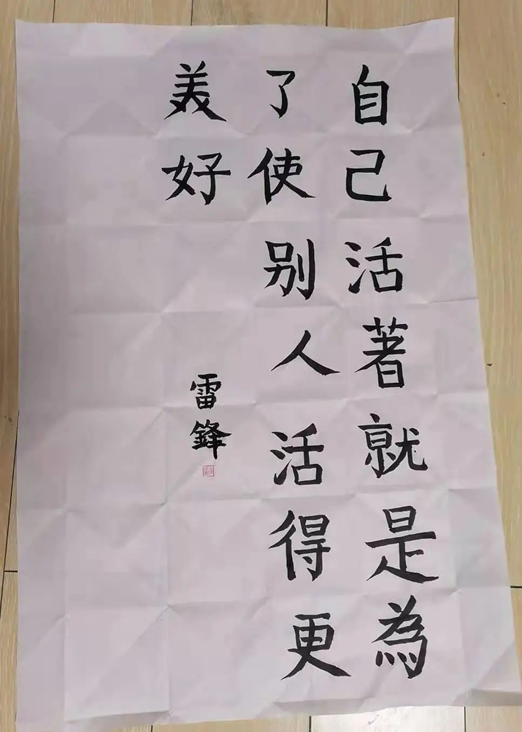 自己活著就是為
了使别人活得更
美好
雷鋒